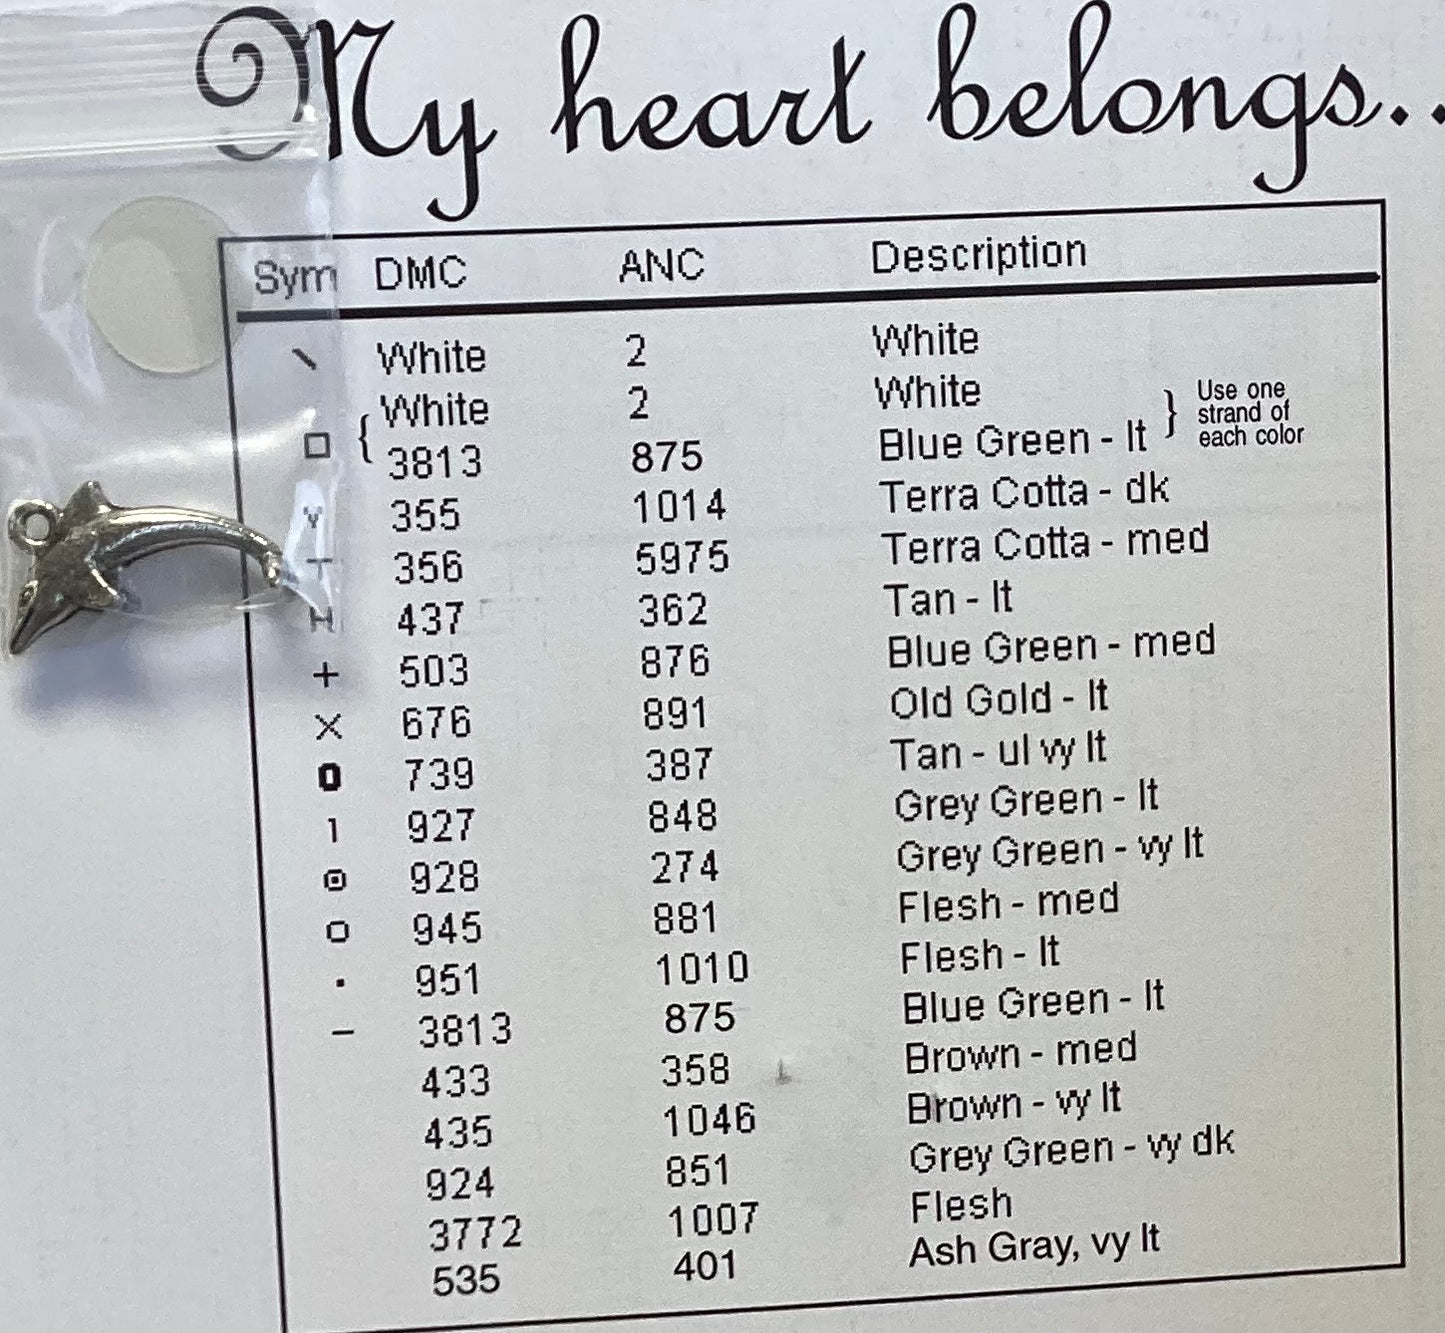 My heart belongs..
Sym DMC ANC Description
\ White 2 White
□ { White 2 White } Use one strand of each color
3813 875 Blue Green - lt
Y 355 1014 Terra Cotta - dk
T 356 5975 Terra Cotta - med
H 437 362 Tan - lt
+ 503 876 Blue Green - med
X 676 891 Old Gold - lt
0 739 387 Tan - ul vy lt
1 927 848 Grey Green - lt
⊡ 928 274 Grey Green - vy lt
□ 945 881 Flesh - med
· 951 1010 Flesh - lt
− 3813 875 Blue Green - lt
433 358 Brown - med
435 1046 Brown - vy lt
924 851 Grey Green - vy dk
3772 1007 Flesh
535 401 Ash Gray, vy lt